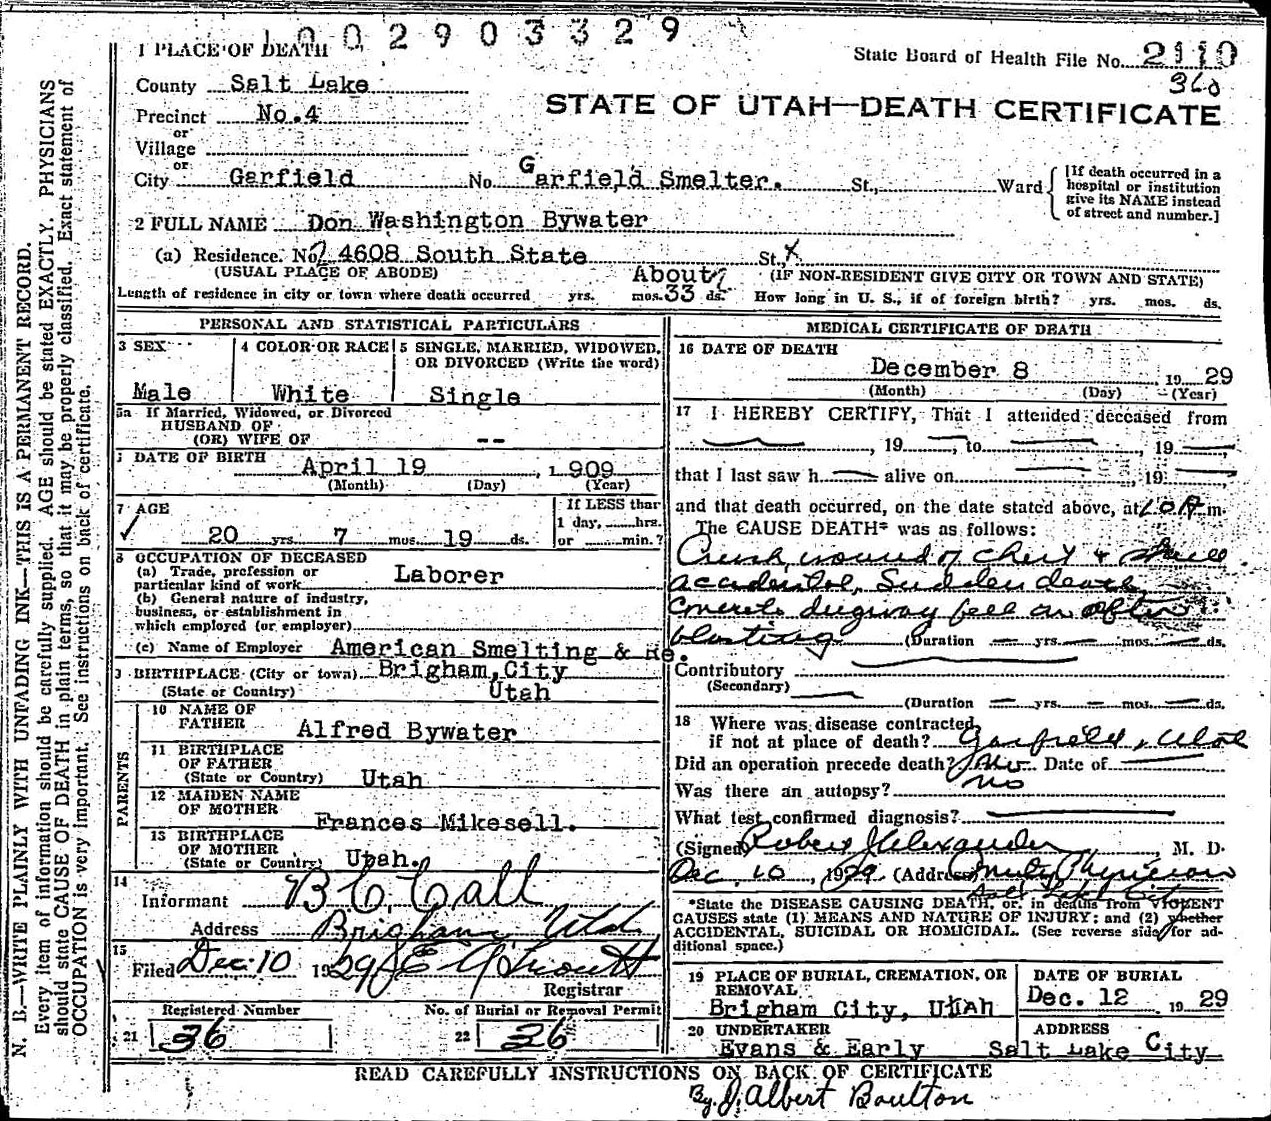 1002903329
1 PLACE OF DEATH
State Board of Health File No. 2110
360
County Salt Lake
STATE OF UTAH—DEATH CERTIFICATE
Precinct No. 4
or
Village
or
City Garfield No. Garfield Smelter. St., Ward
[If death occurred in a
hospital or institution
give its NAME instead
of street and number.]
2 FULL NAME Don Washington Bywater
(a) Residence. No. 4608 South State St., X
(USUAL PLACE OF ABODE) About (IF NON-RESIDENT GIVE CITY OR TOWN AND STATE)
Length of residence in city or town where death occurred yrs. mos. 33 ds. How long in U. S., if of foreign birth? yrs. mos. ds.
PERSONAL AND STATISTICAL PARTICULARS
3 SEX
Male
4 COLOR OR RACE
White
5 SINGLE, MARRIED, WIDOWED,
OR DIVORCED (Write the word)
Single
5a If Married, Widowed, or Divorced
HUSBAND OF
(OR) WIFE OF --
DATE OF BIRTH
April 19, 1909
(Month) (Day) (Year)
7 AGE
20 yrs. 7 mos. 19 ds.
If LESS than
1 day, hrs.
or min.?
8 OCCUPATION OF DECEASED
(a) Trade, profession or
particular kind of work Laborer
(b) General nature of industry,
business, or establishment in
which employed (or employer)
(c) Name of Employer American Smelting & Re.
BIRTHPLACE (City or town) Brigham City
(State or Country) Utah
PARENTS
10 NAME OF
FATHER Alfred Bywater
11 BIRTHPLACE
OF FATHER
(State or Country) Utah
12 MAIDEN NAME
OF MOTHER
Frances Mikesell.
13 BIRTHPLACE
OF MOTHER
(State or Country) Utah.
14
Informant B C Call
Address Brigham, Utah
15
Filed Dec. 10 1929 J E Trioutt
Registrar
Registered Number No. of Burial or Removal Permit
21 36 22 26
MEDICAL CERTIFICATE OF DEATH
16 DATE OF DEATH
December 8 1929
(Month) (Day) (Year)
17 I HEREBY CERTIFY, That I attended deceased from
, 19 to , 19
that I last saw h alive on , 19
and that death occurred, on the date stated above, at 10 A m.
The CAUSE DEATH* was as follows:
Crush wound of chest & skull
accidental, Sudden death
concrete dugway fell on after
blasting (Duration yrs. mos. ds.
Contributory
(Secondary)
(Duration yrs. mos. ds.
18 Where was disease contracted
if not at place of death? Garfield, Utah
Did an operation precede death? No Date of
Was there an autopsy? no
What test confirmed diagnosis?
(Signed) Robert J Alexander, M. D.
Dec. 10, 1929 (Address) County Physician
Salt Lake City
*State the DISEASE CAUSING DEATH, or, in deaths from VIOLENT
CAUSES state (1) MEANS AND NATURE OF INJURY; and (2) whether
ACCIDENTAL, SUICIDAL OR HOMICIDAL. (See reverse side for ad-
ditional space.)
19 PLACE OF BURIAL, CREMATION, OR
REMOVAL
Brigham City, UtAH
DATE OF BURIAL
Dec. 12 1929
20 UNDERTAKER
Evans & Early
ADDRESS
Salt Lake City
READ CAREFULLY INSTRUCTIONS ON BACK OF CERTIFICATE
By J. Albert Boulton
N. B.—WRITE PLAINLY WITH UNFADING INK—THIS IS A PERMANENT RECORD.
Every item of information should be carefully supplied. AGE should be stated EXACTLY. PHYSICIANS
should state CAUSE OF DEATH in plain terms, so that it may be properly classified. Exact statement of
OCCUPATION is very important. See instructions on back of certificate.